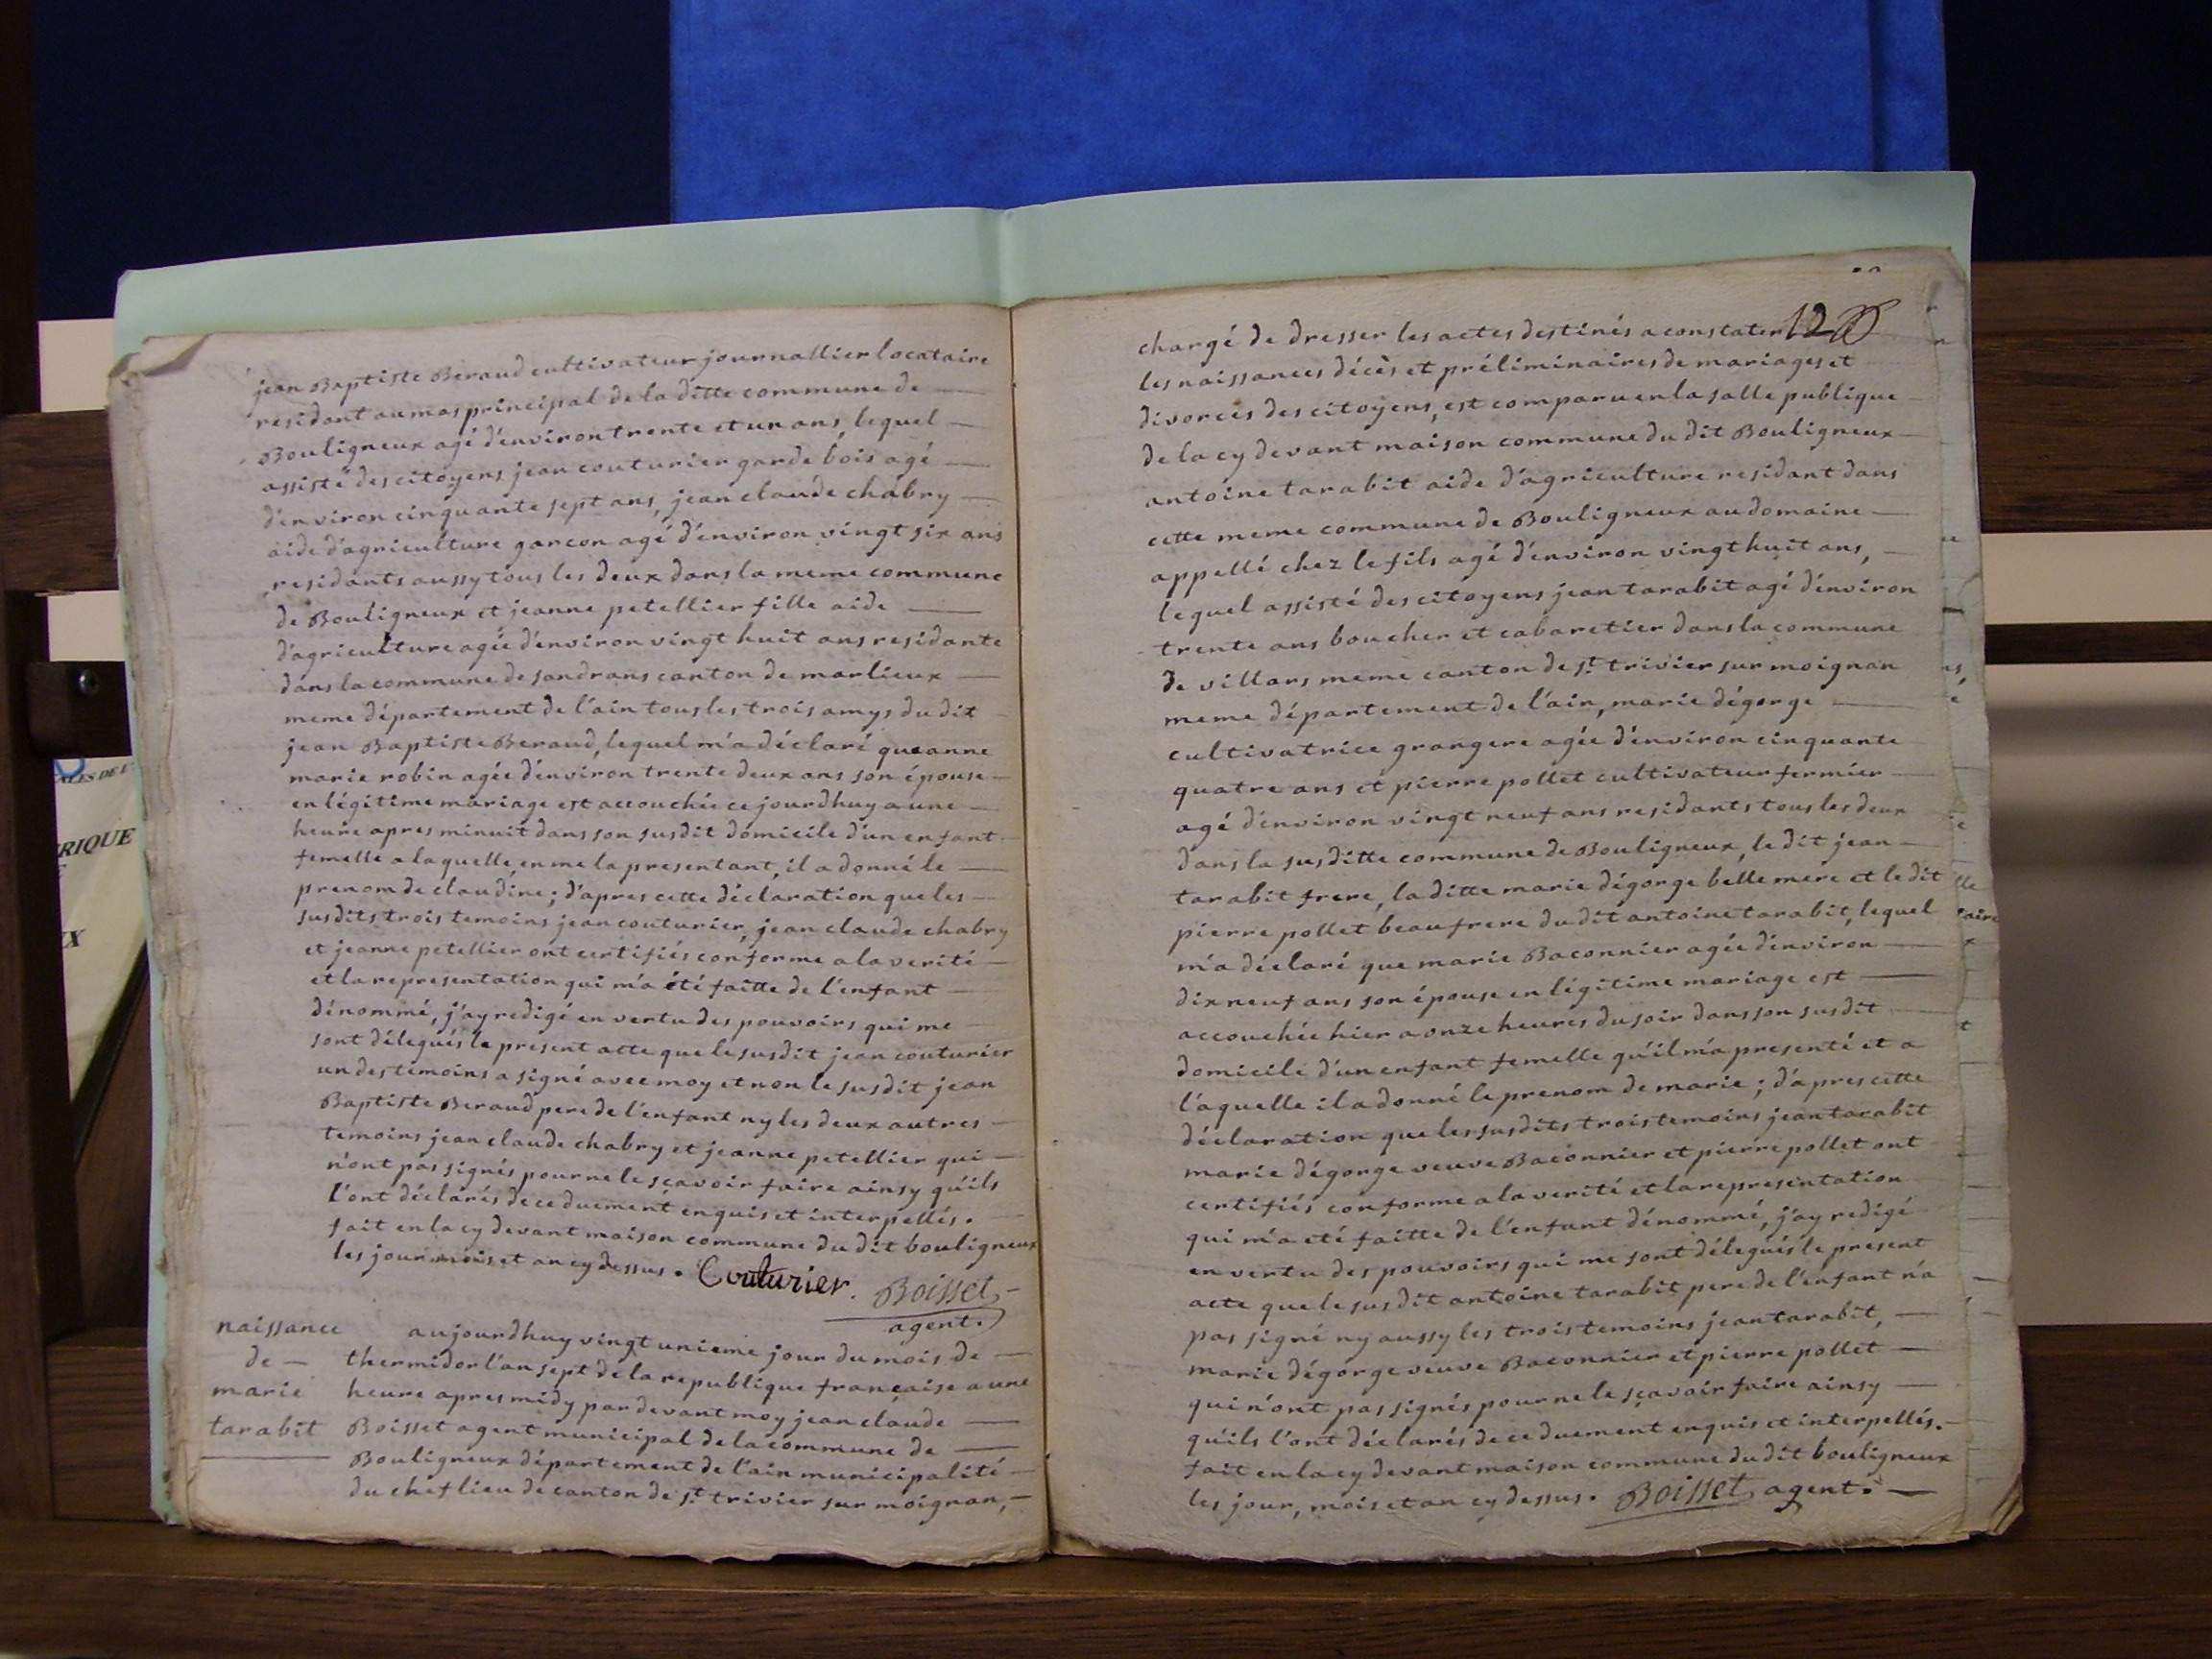 jean Baptiste Beraud cultivateur journallier locataire
residant au mas principal de la ditte commune de
Bouligneux agé d'environ trente et un ans, lequel
assisté des citoyens jean couturier garde bois agé
d'environ cinquante sept ans, jean claude chabry
aide d'agriculture garcon agé d'environ vingt six ans
residants aussy tous les deux dans la meme commune
de Bouligneux et jeanne petellier fille aide
d'agriculture agée d'environ vingt huit ans residante
dans la commune de sandrans canton de marlieux
meme département de l'ain tous les trois amys du dit
jean Baptiste Beraud, lequel m'a déclaré que anne
marie robin agée d'environ trente deux ans son épouse
en légitime mariage est accouchée ce jourdhuy a une
heure apres minuit dans son susdit domicile d'un enfant
femelle a laquelle, en me la presentant, il a donné le
prenom de claudine; d'apres cette déclaration que les
susdits trois temoins jean couturier, jean claude chabry
et jeanne petellier ont certifiés conforme a la verité
et la representation qui m'a été faitte de l'enfant
dénommé, j'ay redigé en vertu des pouvoirs qui me
sont délegués le present acte que le susdit jean couturier
un des temoins a signé avec moy et non le susdit jean
Baptiste Beraud pere de l'enfant ny les deux autres
temoins jean claude chabry et jeanne petellier qui
n'ont pas signés pour ne le sçavoir faire ainsy qu'ils
l'ont déclarés de ce duement enquis et interpellés.
fait en la cy devant maison commune du dit bouligneux
les jour mois et an cy dessus. Couturier. Boisset
agent.
naissance
de
marie
tarabit
aujourdhuy vingt unieme jour du mois de
thermidor l'an sept de la republique française a une
heure apres midy par devant moy jean claude
Boisset agent municipal de la commune de
Bouligneux département de l'ain municipalité
du chef lieu de canton de st trivier sur moignan,
chargé de dresser les actes destinés a constater 12
les naissances décès et préliminaires de mariages et
divorces des citoyens, est comparu en la salle publique
de la cy devant maison commune du dit Bouligneux
antoine tarabit aide d'agriculture residant dans
cette meme commune de Bouligneux au domaine
appellé chez le fils agé d'environ vingt huit ans,
lequel assisté des citoyens jean tarabit agé d'environ
trente ans boucher et cabaretier dans la commune
de villars meme canton de st trivier sur moignan
meme département de l'ain, marie dégorge
cultivatrice grangere agée d'environ cinquante
quatre ans et pierre pollet cultivateur fermier
agé d'environ vingt neuf ans residants tous les deux
dans la susditte commune de Bouligneux, le dit jean
tarabit frere, la ditte marie dégorge belle mere et le dit
pierre pollet beau frere du dit antoine tarabit, lequel
m'a déclaré que marie Baconnier agée d'environ
dix neuf ans son épouse en légitime mariage est
accouchée hier a onze heures du soir dans son susdit
domicile d'un enfant femelle qu'il m'a presenté et a
l'aquelle il a donné le prenom de marie; d'apres cette
déclaration que les susdits trois temoins jean tarabit
marie dégorge veuve Baconnier et pierre pollet ont
certifiés conforme a la verité et la representation
qui m'a eté faitte de l'enfant dénommé, j'ay redigé
en vertu des pouvoirs qui me sont délegués le present
acte que le susdit antoine tarabit pere de l'enfant n'a
pas signé ny aussy les trois temoins jean tarabit,
marie dégorge veuve Baconnier et pierre pollet
qui n'ont pas signés pour ne le sçavoir faire ainsy
qu'ils l'ont déclarés de ce duement enquis et interpellés.
fait en la cy devant maison commune du dit bouligneux
les jour, mois et an cy dessus. Boisset agent.